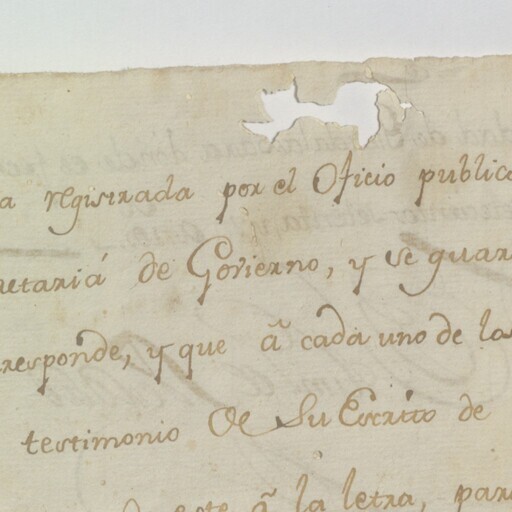 a registrada por el Oficio publico
etaria de Govierno, y se guar
rresponde, y que â cada uno de los
testimonio de su Escrito de
de este â la letra, para